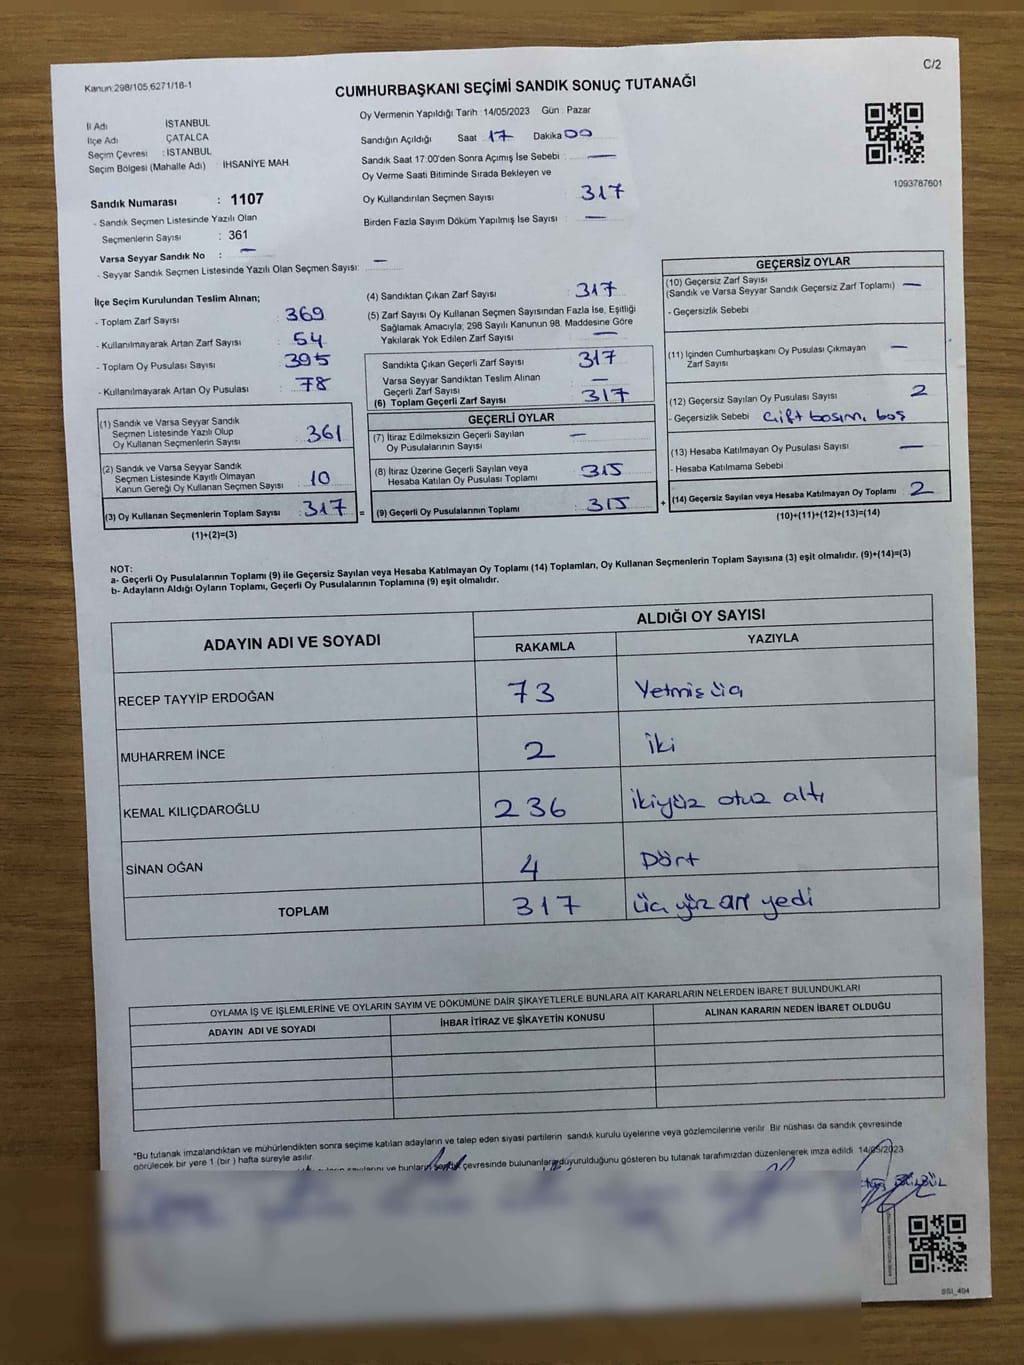 Kanun:298/105,6271/18-1
C/2
CUMHURBAŞKANI SEÇİMİ SANDIK SONUÇ TUTANAĞI
İl Adı İSTANBUL
İlçe Adı ÇATALCA
Seçim Çevresi : İSTANBUL
Seçim Bölgesi (Mahalle Adı) : İHSANİYE MAH
Oy Vermenin Yapıldığı Tarih 14/05/2023 Gün : Pazar
Sandığın Açıldığı Saat 17 Dakika 00
Sandık Saat 17:00'den Sonra Açımış İse Sebebi : —
Oy Verme Saati Bitiminde Sırada Bekleyen ve
Oy Kullandırılan Seçmen Sayısı 317
Birden Fazla Sayım Döküm Yapılmış İse Sayısı : —
1093787601
Sandık Numarası : 1107
- Sandık Seçmen Listesinde Yazılı Olan
Seçmenlerin Sayısı : 361
Varsa Seyyar Sandık No : —
- Seyyar Sandık Seçmen Listesinde Yazılı Olan Seçmen Sayısı: —
İlçe Seçim Kurulundan Teslim Alınan;
- Toplam Zarf Sayısı : 369
- Kullanılmayarak Artan Zarf Sayısı : 54
- Toplam Oy Pusulası Sayısı : 395
- Kullanılmayarak Artan Oy Pusulası : 78
(1) Sandık ve Varsa Seyyar Sandık
Seçmen Listesinde Yazılı Olup
Oy Kullanan Seçmenlerin Sayısı : 361
(2) Sandık ve Varsa Seyyar Sandık
Seçmen Listesinde Kayıtlı Olmayan
Kanun Gereği Oy Kullanan Seçmen Sayısı : 10
(3) Oy Kullanan Seçmenlerin Toplam Sayısı : 317 =
(1)+(2)=(3)
(4) Sandıktan Çıkan Zarf Sayısı : 317
(5) Zarf Sayısı Oy Kullanan Seçmen Sayısından Fazla İse, Eşitliği
Sağlamak Amacıyla; 298 Sayılı Kanunun 98. Maddesine Göre
Yakılarak Yok Edilen Zarf Sayısı : —
Sandıkta Çıkan Geçerli Zarf Sayısı : 317
Varsa Seyyar Sandıktan Teslim Alınan
Geçerli Zarf Sayısı : —
(6) Toplam Geçerli Zarf Sayısı : 317
GEÇERLİ OYLAR
(7) İtiraz Edilmeksizin Geçerli Sayılan
Oy Pusulalarının Sayısı : —
(8) İtiraz Üzerine Geçerli Sayılan veya
Hesaba Katılan Oy Pusulası Toplamı : 315
(9) Geçerli Oy Pusulalarının Toplamı : 315 +
GEÇERSİZ OYLAR
(10) Geçersiz Zarf Sayısı
(Sandık ve Varsa Seyyar Sandık Geçersiz Zarf Toplamı) : —
- Geçersizlik Sebebi
(11) İçinden Cumhurbaşkanı Oy Pusulası Çıkmayan
Zarf Sayısı : —
(12) Geçersiz Sayılan Oy Pusulası Sayısı : 2
- Geçersizlik Sebebi : Çift basım, boş
(13) Hesaba Katılmayan Oy Pusulası Sayısı : —
- Hesaba Katılmama Sebebi
(14) Geçersiz Sayılan veya Hesaba Katılmayan Oy Toplamı : 2
(10)+(11)+(12)+(13)=(14)
NOT:
a- Geçerli Oy Pusulalarının Toplamı (9) ile Geçersiz Sayılan veya Hesaba Katılmayan Oy Toplamı (14) Toplamları, Oy Kullanan Seçmenlerin Toplam Sayısına (3) eşit olmalıdır. (9)+(14)=(3)
b- Adayların Aldığı Oyların Toplamı, Geçerli Oy Pusulalarının Toplamına (9) eşit olmalıdır.
ADAYIN ADI VE SOYADI ALDIĞI OY SAYISI
RAKAMLA YAZIYLA
RECEP TAYYİP ERDOĞAN 73 Yetmiş üç
MUHARREM İNCE 2 iki
KEMAL KILIÇDAROĞLU 236 ikiyüz otuz altı
SİNAN OĞAN 4 Dört
TOPLAM 317 üç yüz on yedi
OYLAMA İŞ VE İŞLEMLERİNE VE OYLARIN SAYIM VE DÖKÜMÜNE DAİR ŞİKAYETLERLE BUNLARA AİT KARARLARIN NELERDEN İBARET BULUNDUKLARI
ADAYIN ADI VE SOYADI İHBAR İTİRAZ VE ŞİKAYETİN KONUSU ALINAN KARARIN NEDEN İBARET OLDUĞU
*Bu tutanak imzalandıktan ve mühürlendikten sonra seçime katılan adayların ve talep eden siyasi partilerin sandık kurulu üyelerine veya gözlemcilerine verilir. Bir nüshası da sandık çevresinde
görülecek bir yere 1 (bir ) hafta süreyle asılır.
ve bunların sandık çevresinde bulunanlara duyurulduğunu gösteren bu tutanak tarafımızdan düzenlenerek imza edildi. 14/05/2023
SSI_494